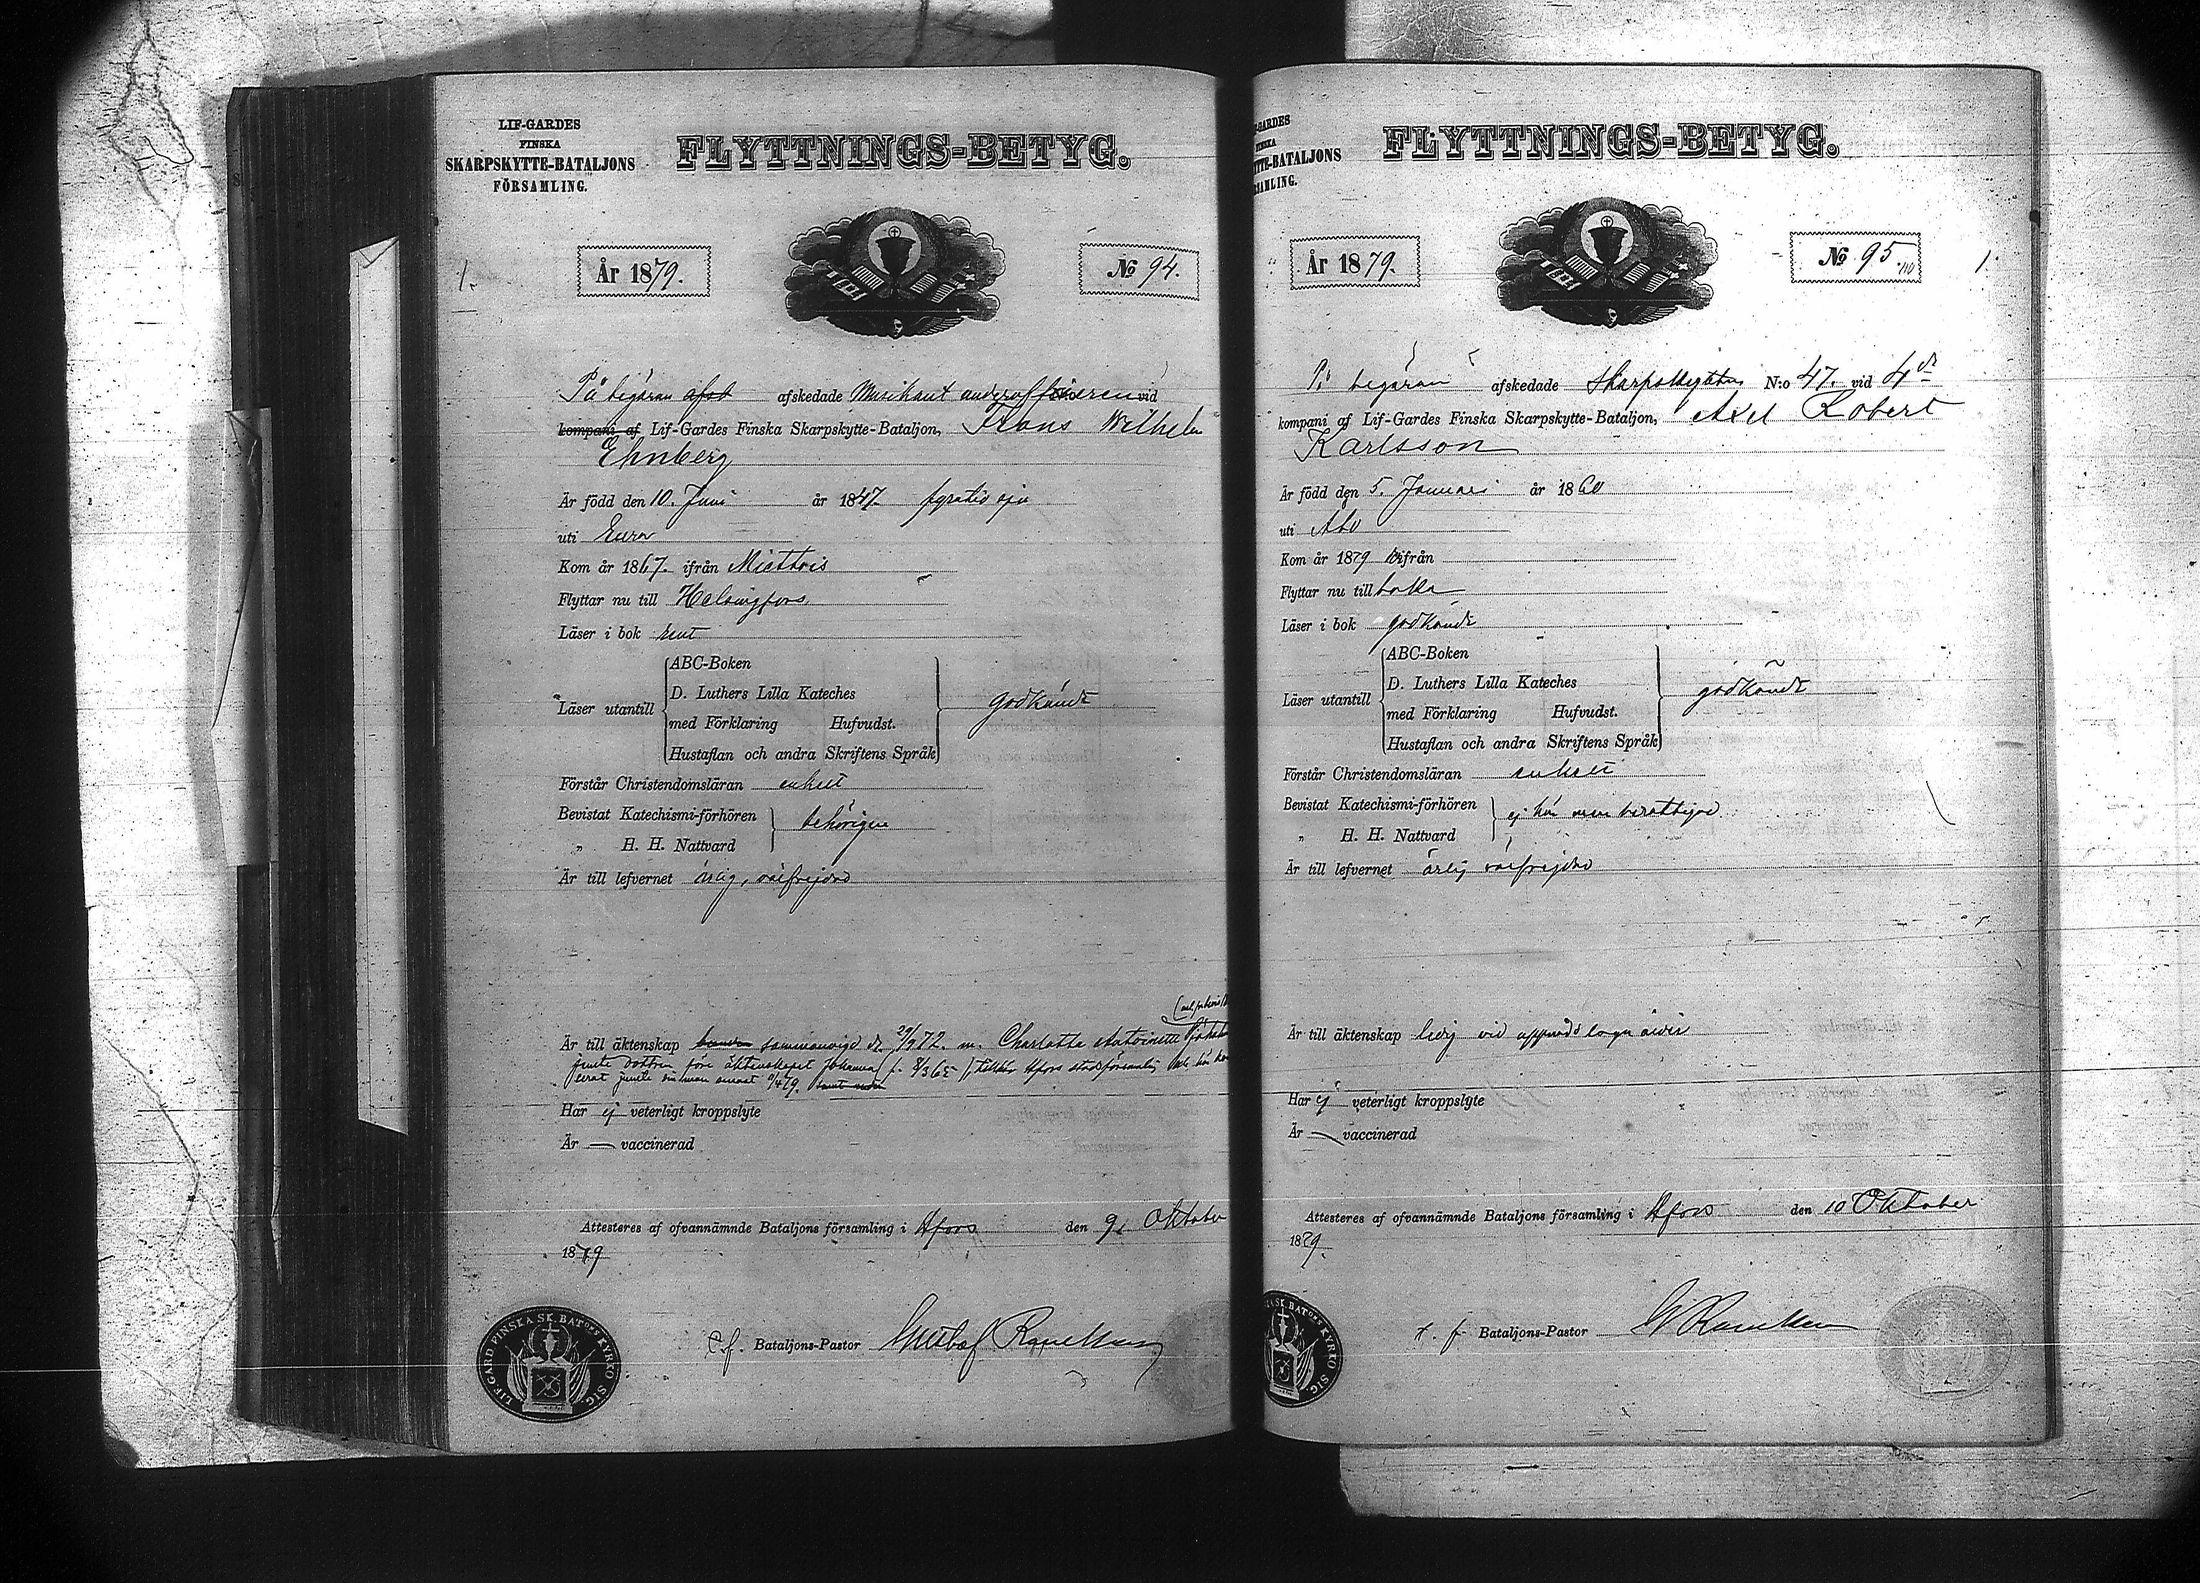 LIF-GARDES
FINSKA
SKARPSKYTTE-BATALJONS
FÖRSAMLING.
FLYTTNINGS-BETYG.
1.
År 1879.
No 94.
På begäran afskedade Musikant underofficieren vid
kompani af Lif-Gardes Finska Skarpskytte-Bataljon, Frans Wilhelm
Ehnberg
Är född den 10. Juni år 1847. fyratio sju
uti Eura
Kom år 1867. ifrån Miettois
Flyttar nu till Helsingfors.
Läser i bok rent
Läser utantill
ABC-Boken
D. Luthers Lilla Kateches
med Förklaring Hufvudst.
Hustaflan och andra Skriftens Språk
godkändt
Förstår Christendomsläran enkelt
Bevistat Katechismi-förhören
„ H. H. Nattvard
behörigen
Är till lefvernet ärlig, välfrejdad
Är till äktenskap sammanvigd d. 29/9 72. m. Charlotta Antoinette
jemte dottren före äktenskapet Johanna (f. 8/3 65),
Har ej veterligt kroppslyte
Är — vaccinerad
Attesteres af ofvannämnde Bataljons församling i Hfors den 9. Oktober
1879
e.f. Bataljons-Pastor Gustaf
LIF.GARD.FINSKA SK.BAT:NS KYRKO SIG.
-GARDES
FINSKA
YTTE-BATALJONS
FÖRSAMLING.
FLYTTNINGS-BETYG.
År 1879.
No 95.
1.
På begäran afskedade Skarpskytten N:o 47. vid 4de
kompani af Lif-Gardes Finska Skarpskytte-Bataljon, Axel Robert
Karlsson
Är född den 5. Januari år 1860
uti Åbo
Kom år 1879 ifrån
Flyttar nu till
Läser i bok godkändt
Läser utantill
ABC-Boken
D. Luthers Lilla Kateches
med Förklaring Hufvudst.
Hustaflan och andra Skriftens Språk
godkändt
Förstår Christendomsläran enkelt
Bevistat Katechismi-förhören
„ H. H. Nattvard
ej här men berättigad
Är till lefvernet ärlig välfrejdad
Är till äktenskap ledig vid uppnådd laga ålder
Har ej veterligt kroppslyte
Är — vaccinerad
Attesteres af ofvannämnde Bataljons församling i Hfors den 10 Oktober
1879.
e. f. Bataljons-Pastor G
SK.BAT:NS KYRKO SIG.